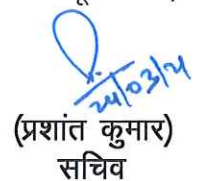 24/03/21
(प्रशांत कुमार)
सचिव